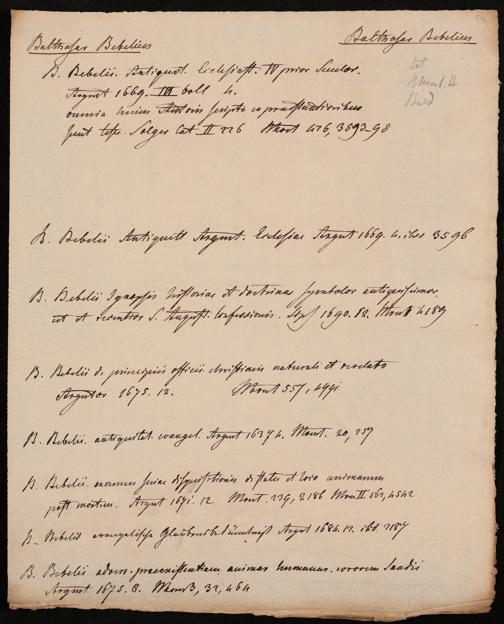 Balthasar Bebelius
Balthasar Bebelius
B. Bebelii Antiquit. Ecclesiast. IV prior Seculor.
Argent 1669. III 4.
omnia huius Autoris scripta
sunt Solger Cat II 226 Mont 426, 3593-98
B. Bebelii Antiquitt Argent. Ecclesiae Argent 1669. 4. ibid 3596
B. Bebelii Synopsis historiae et doctrinae symbolor antiquissimor.
et recentior S. August. Confessionis. 1690. 12. Mont 4189
B. Bebelii de principiis officii christiani naturali et revelato
Argentor 1675. 12. Mont 557, 4991
B. Bebelii. antiquitat. evangel. Argent 4. Mont. 20, 257
B. Bebelii examen disquisitionis de statu et loco animarum
post mortem. Argent 1671. 12 Mont. 239, 2186 Mon II 561, 4542
B. Bebelii evangelische Argent 1684. 12. ibd 2187
B. Bebelii advers. praeexistentiam animar humanar. errorem Sandii
Argent 1675. 8. 32, 464